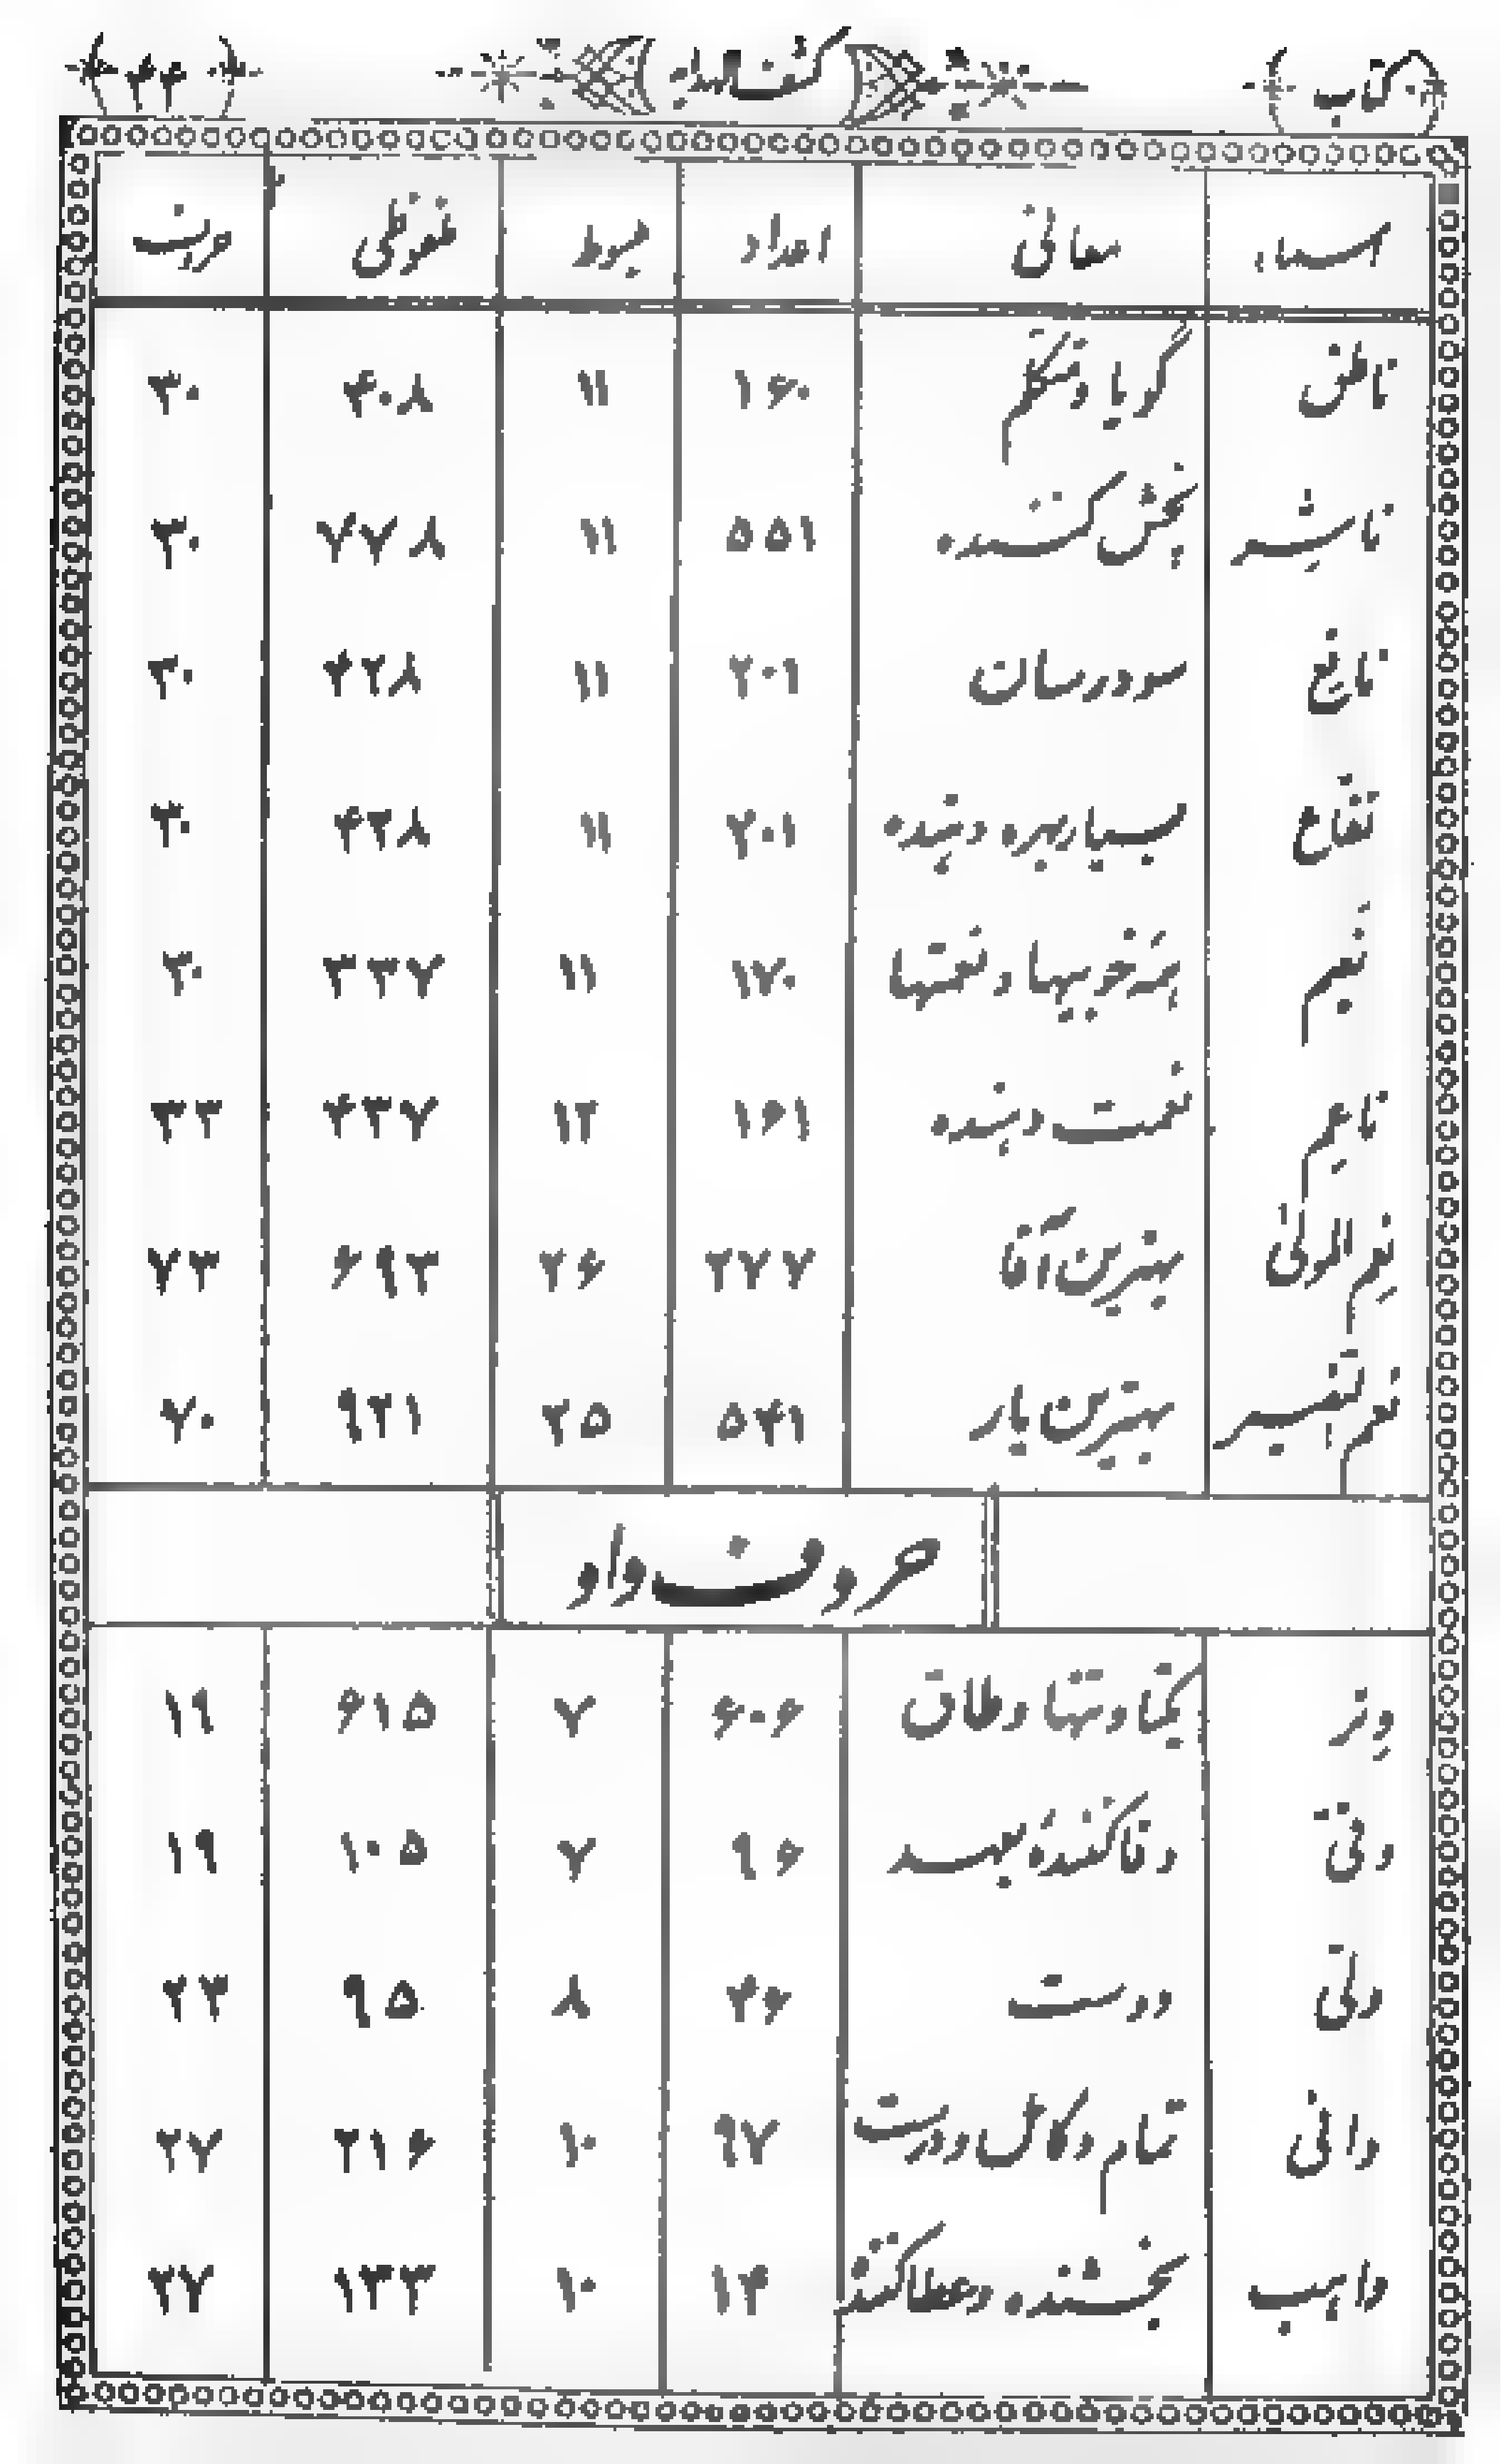 کتاب کشف الهدایه ۴۴
اسماء معانی اعداد مبسوط ملفوظی حروف
ناطق گویا و متکلم ۱۶۰ ۱۱ ۴۰۸ ۳۰
ناشر پخش کننده ۵۵۱ ۱۱ ۷۷۸ ۳۰
نافع سود رسان ۲۰۱ ۱۱ ۴۲۸ ۳۰
نفّاع بسیار بهره دهنده ۲۰۱ ۱۱ ۴۲۸ ۳۰
نعیم همه خوبیها و نعمتها ۱۷۰ ۱۱ ۳۳۷ ۳۰
ناعم نعمت دهنده ۱۶۱ ۱۲ ۴۳۷ ۳۳
نعم المولی بهترین آقا ۲۷۷ ۲۶ ۶۹۳ ۷۳
نعم النصیر بهترین یار ۵۴۱ ۲۵ ۹۲۱ ۷۰
حروف واو
وتر یکتا و تنها و طاق ۶۰۶ ۷ ۶۱۵ ۱۹
وفی وفا کنندهٔ بعهد ۹۶ ۷ ۱۰۵ ۱۹
ولی دوست ۴۶ ۸ ۹۵ ۲۳
وافی تمام و کامل و درست ۹۷ ۱۰ ۲۱۶ ۲۷
واهب بخشنده و عطا کننده ۱۴ ۱۰ ۱۳۳ ۲۷